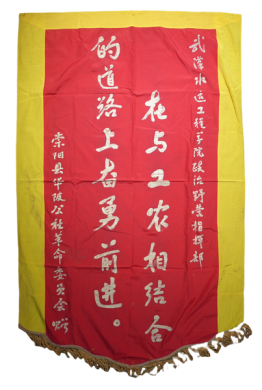 武汉水运工程学院政治野营指挥部
在与工农相结合
的道路上奋勇前进。
崇阳县华陂公社革命委员会 赠